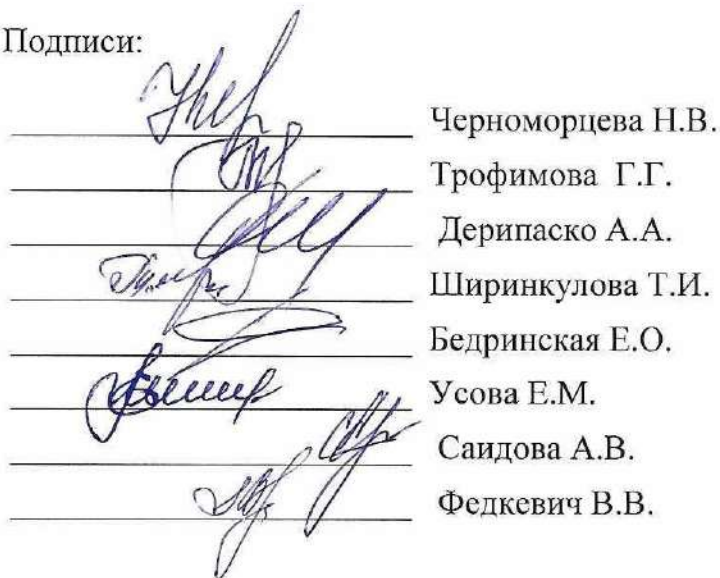 Подписи:
Черноморцева Н.В.
Трофимова Г.Г.
Дерипаско А.А.
Ширинкулова Т.И.
Бедринская Е.О.
Усова Е.М.
Саидова А.В.
Федкевич В.В.